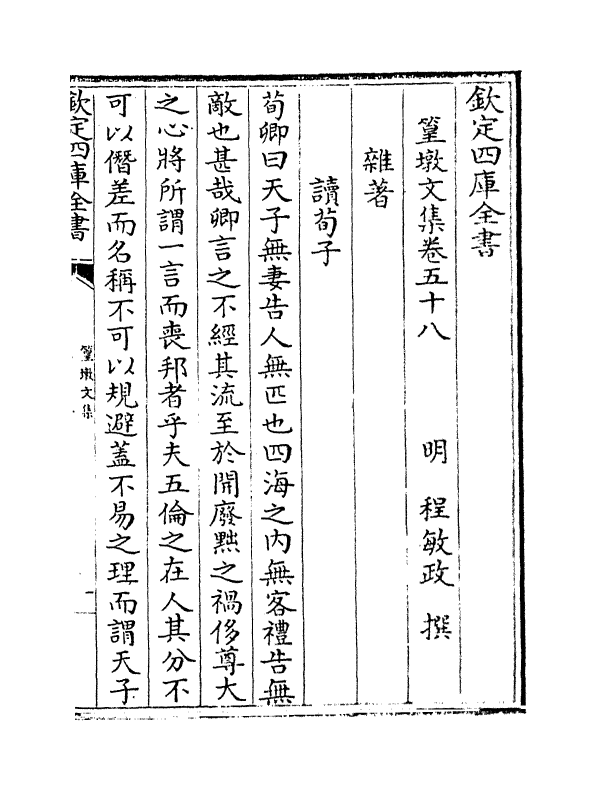 欽定四庫全書
篁墩文集卷五十八　明　程敏政　撰
雜著
讀荀子
荀卿曰天子無妻告人無匹也四海之内無客禮告無
敵也甚哉卿言之不經其流至於開廢黜之禍侈尊大
之心將所謂一言而喪邦者乎夫五倫之在人其分不
可以僭差而名稱不可以規避蓋不易之理而謂天子
欽定四庫全書
篁墩文集
一